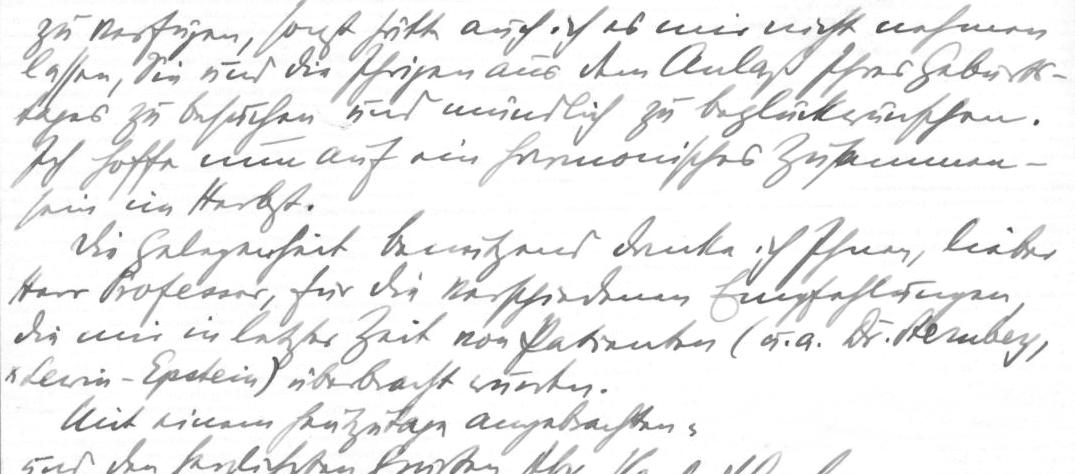 zu verfügen, sonst hätte auch ich es mir nicht nehmen
lassen, Sie und die Ihrigen aus dem Anlaß Ihres Geburts-
tages zu besuchen und mündlich zu beglückwünschen.
Ich hoffe nun auf ein harmonisches Zusammen-
sein im Herbst.
Die Gelegenheit benutzend danke ich Ihnen, lieber
Herr Professor, für die verschiedenen Empfehlungen,
die mir in letzter Zeit von Patienten (u.a. Dr. Sternberg,
Lewin-Epstein) überbracht wurden.
Mit einem heutzutage angebrachten
und den herzlichsten Grüssen Ihr